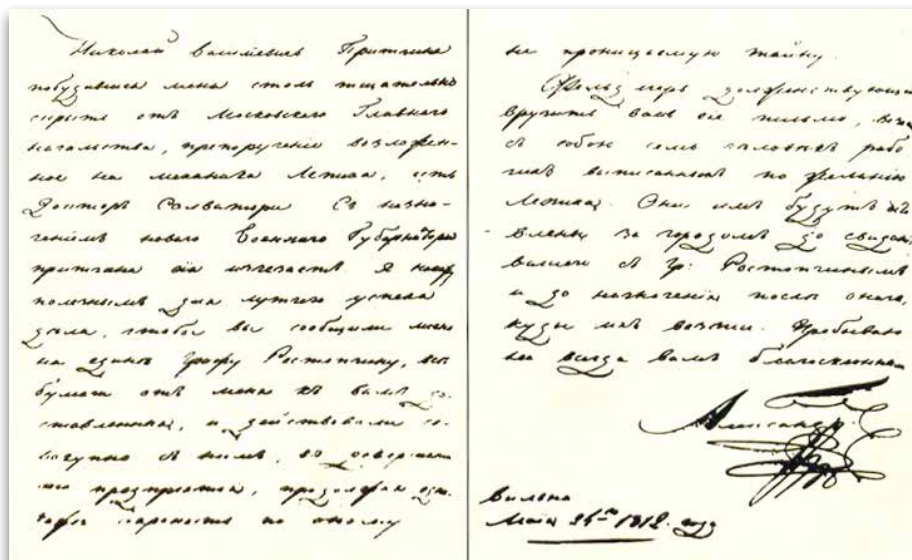 Николай Васильевич Притчина
побудившая меня столь тщательно
скрыть отъ Московскаго Главнаго
начальства, препорученіе возложен-
ное на механика Леппиха, есть
Докторъ Салватори Съ назна-
ченіемъ новаго Военнаго Губернатора
притчина сія изчезаетъ. Я нахожу
полезнымъ для лутчаго успеха
дела, чтобы вы сообщили лично
на единѣ Графу Ростопчину, все
бумаги отъ меня къ вамъ до-
ставленныя, и действовали со-
вокупно съ нимъ, до совершения
сего предпріятія, продолжая
по оному
не проницаемую тайну.
Фельдъ егерь долженствующій
вручить вамъ сіе письмо,
съ собою семь человекъ рабо
чихъ выписанныхъ по желанію
Леппиха. Они имъ будутъ
влены за городомъ до свиданія
вашего съ Гр: Ростопчинымъ
и до назначенія после онаго,
куды ихъ возьми. Пребываю
на всегда вамъ благосклоннымъ
Александръ
Вильна
Маія 24го 1812. году